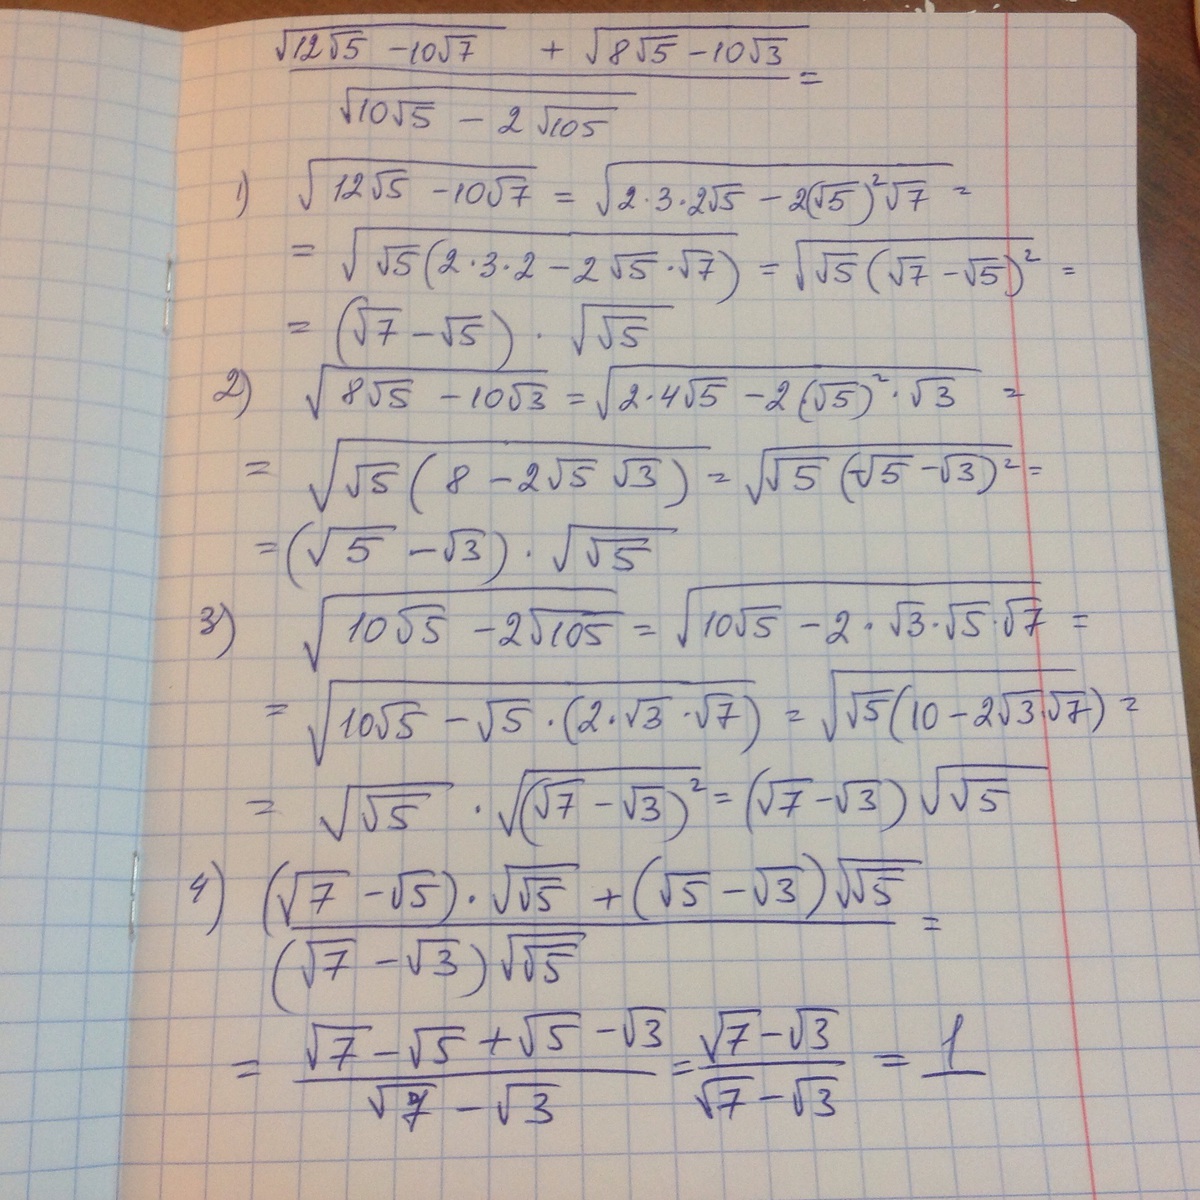 √(12√5 − 10√7) + √(8√5 − 10√3) =
√(10√5 − 2√105)
1) √(12√5 − 10√7) = √(2·3·2√5 − 2(√5)²√7) =
= √(√5(2·3·2 − 2√5·√7)) = √(√5(√7 − √5)²) =
= (√7 − √5) · √√5
2) √(8√5 − 10√3) = √(2·4√5 − 2(√5)²·√3) =
= √(√5(8 − 2√5 √3)) = √(√5(√5 − √3)²) =
= (√5 − √3) · √√5
3) √(10√5 − 2√105) = √(10√5 − 2·√3·√5·√7) =
= √(10√5 − √5·(2·√3·√7)) = √(√5(10 − 2√3·√7)) =
= √√5 · √((√7 − √3)²) = (√7 − √3)√√5
4) (√7 − √5)·√√5 + (√5 − √3)√√5 =
(√7 − √3)√√5
= √7 − √5 + √5 − √3 = √7 − √3 = 1
√7 − √3 √7 − √3